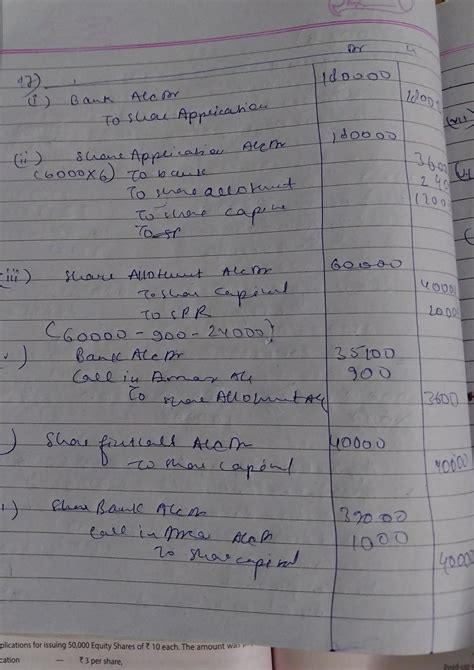 Dr
17)
(i) Bank A/c Dr 180000
To Share Application 18000
(ii) Share Application A/c Dr 180000
(6000x6) To bank 3600
To share allotment 240
To share capital 1200
To SP
iii) Share Allotment A/c Dr 60000
To Shar Capital 40000
To SPR 2000
(60000 - 900 - 24000)
Bank A/c Dr 35100
Call in Arrear A/c 900
To Share Allotment A/c 3600
) Share first call A/c Dr 40000
To Share Capital 40000
) Share Bank A/c Dr 39000
Call in Area A/c Dr 1000
To share capital 40000
plications for issuing 50,000 Equity Shares of ₹ 10 each. The amount was
cation — ₹ 3 per share,